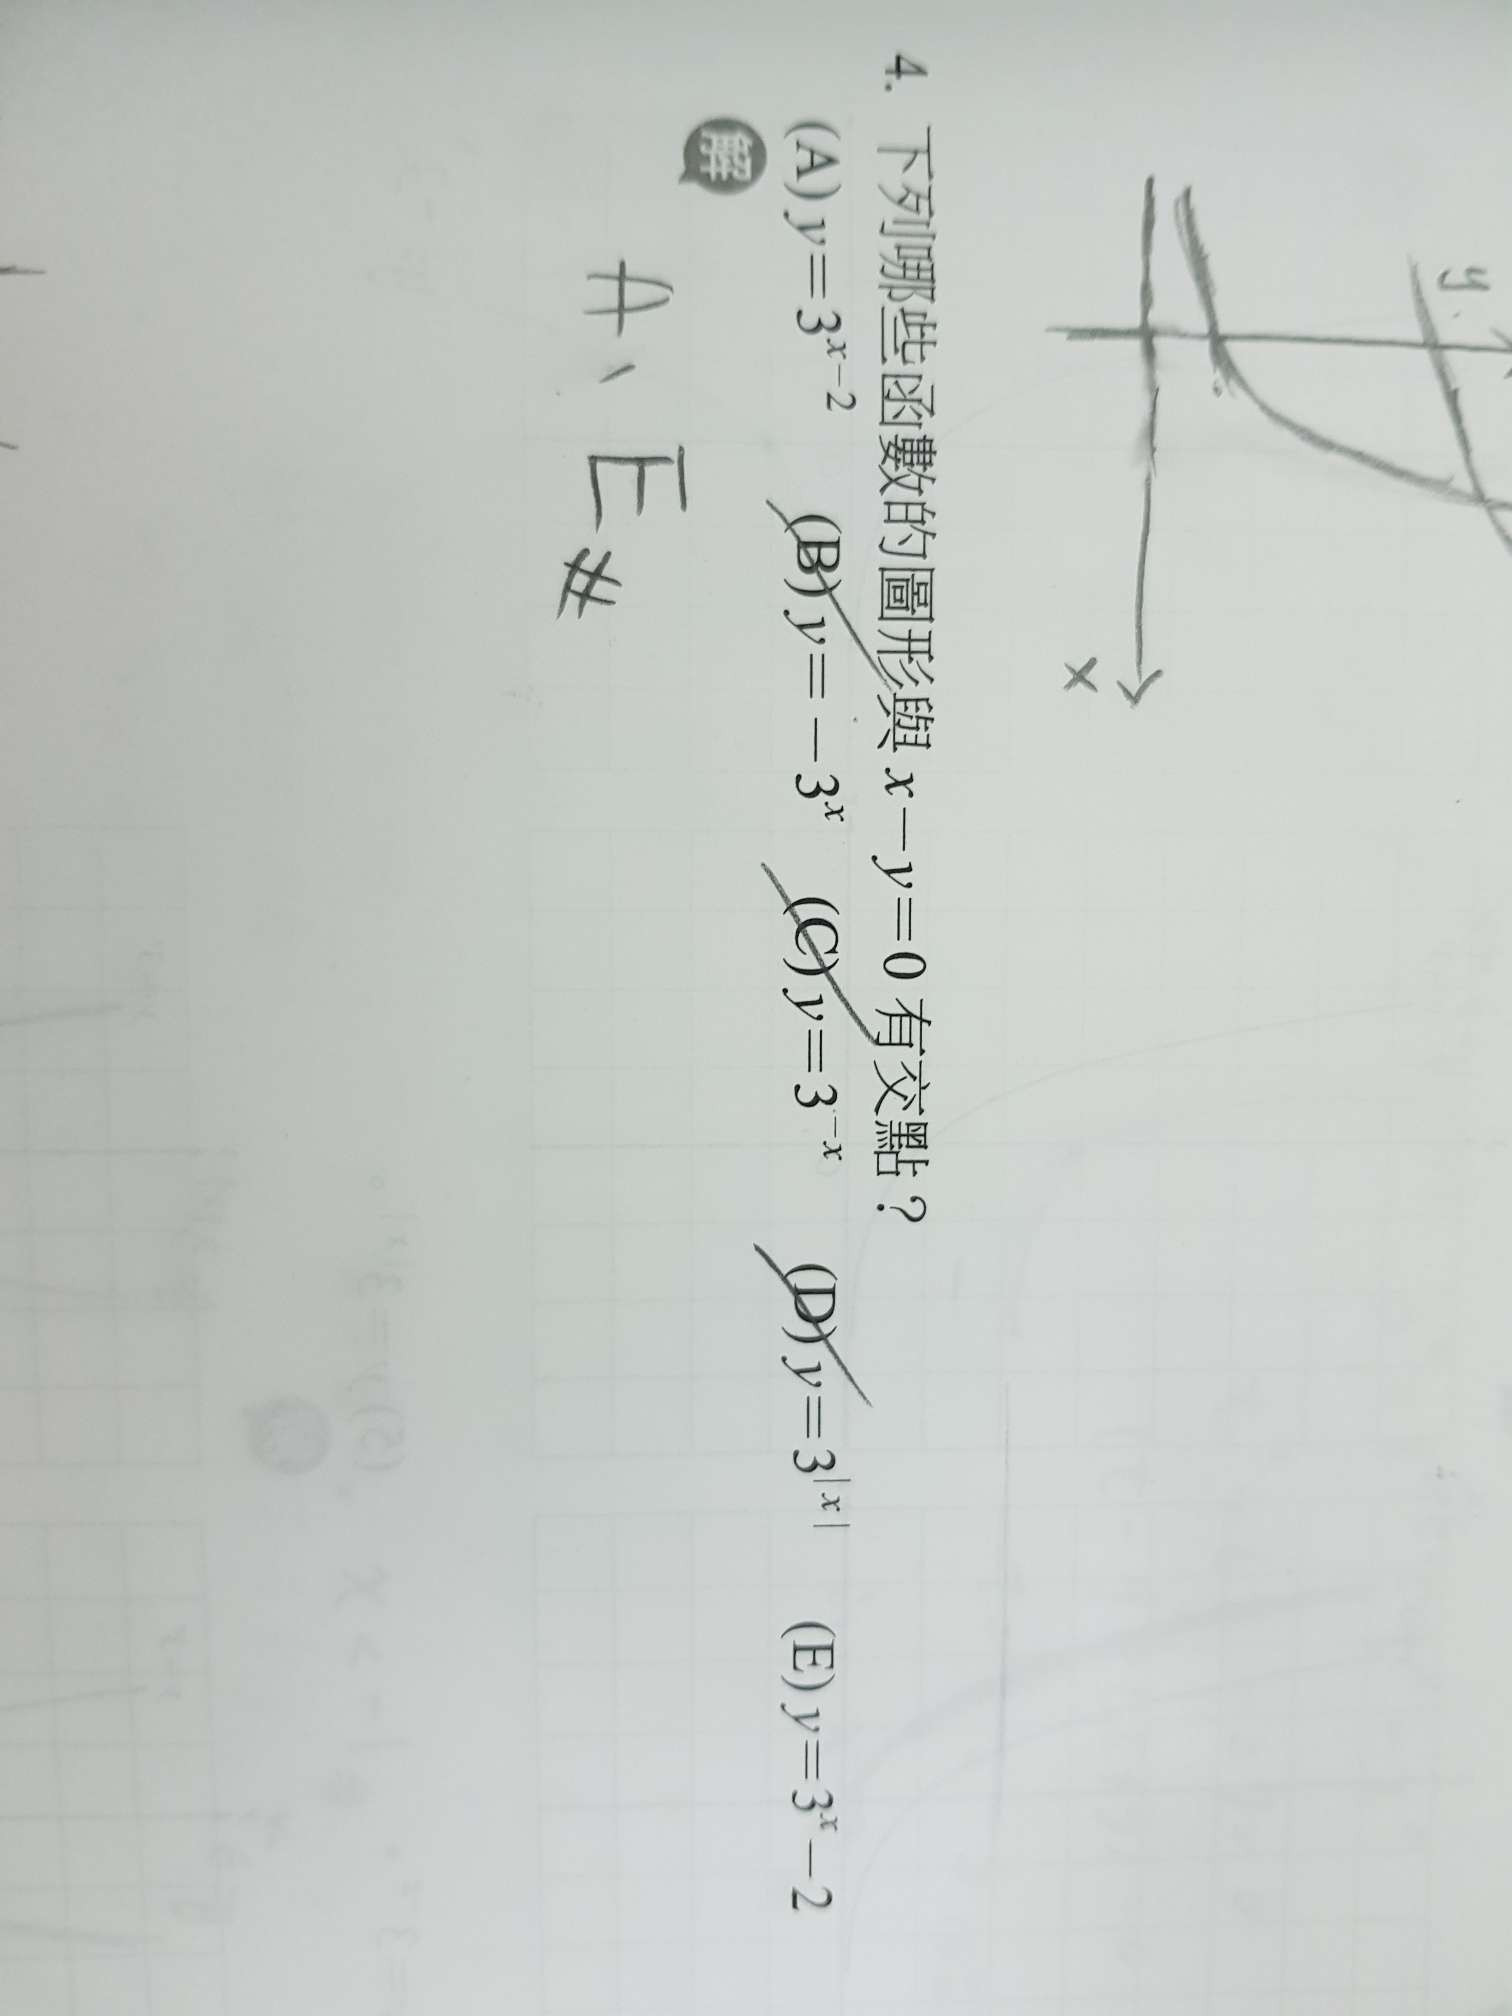 y
x
4. 下列哪些函數的圖形與 x－y＝0 有交點？
(A) y＝3^{x－2} (B) y＝－3^x (C) y＝3^{－x} (D) y＝3^{|x|} (E) y＝3^x－2
解
A、E #